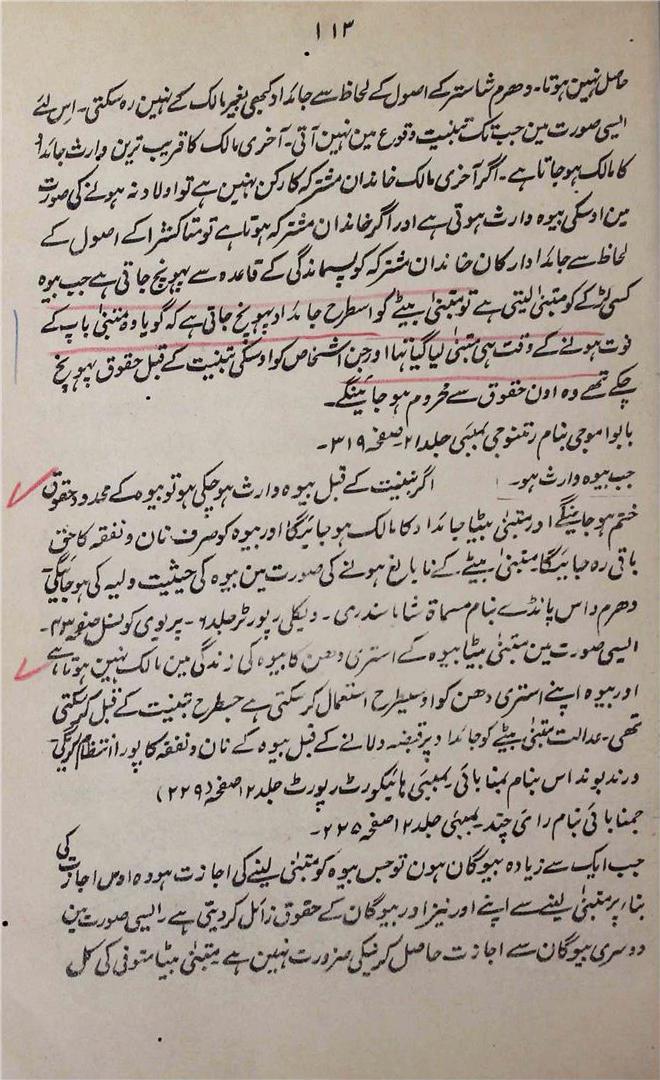 ۱۱۳
حاصل نہین ہوتا۔ دھرم شاستر کے اصول کے لحاظ سے جائداد کبھی بغیر مالک کے نہین رہ سکتی۔ اس لئے
ایسی صورت مین جب تک تبنیت وقوع مین نہین آتی۔ آخری مالک کا قریب ترین وارث جائداد
کا مالک ہو جاتا ہے۔ اگر آخری مالک خاندان مشترکہ کا رکن نہین ہے تو اولاد نہ ہونے کی صورت
مین اوسکی بیوہ وارث ہوتی ہے اور اگر خاندان مشترکہ ہوتا ہے تو متاکشرا کے اصول کے
لحاظ سے جائداد ارکان خاندان مشترکہ کو پسماندگی کے قاعدہ سے پہونچ جاتی ہے جب بیوہ
کسی لڑکے کو متبنیٰ لیتی ہے تو متبنیٰ بیٹے کو اسطرح جائداد پہونچ جاتی ہے کہ گویا وہ متبنیٰ باپ کے
فوت ہونے کے وقت ہی متبنیٰ لیا گیا تہا اور جن اشخاص کو اوسکی تبنیت کے قبل حقوق پہونچ
چکے تھے وہ اون حقوق سے محروم ہو جائینگے۔
بابو اموجی بنام رتنوجی بمبئی جلد ۲۱ صفحہ ۳۱۹۔
جب بیوہ وارث ہو۔ اگر تبنیت کے قبل بیوہ وارث ہو چکی ہو تو بیوہ کے محدود حقوق
ختم ہو جائینگے اور متبنیٰ بیٹا جائداد کا مالک ہو جائیگا اور بیوہ کو صرف نان و نفقہ کا حق
باقی رہ جائیگا۔ متبنیٰ بیٹے کے نابالغ ہونے کی صورت مین بیوہ کی حیثیت ولیہ کی ہو جائیگی۔
دھرم داس پانڈے بنام مسماۃ شاما سندری۔ ویکلی رپورٹر جلد ۶۔ پریوی کونسل صفحہ ۴۳۔
ایسی صورت مین متبنیٰ بیٹا بیوہ کے استری دھن کا بیوہ کی زندگی مین مالک نہین ہوتا ہے
اور بیوہ اپنے استری دھن کو اوسیطرح استعمال کر سکتی ہے جسطرح تبنیت کے قبل کر سکتی
تھی۔ عدالت متبنیٰ بیٹے کو جائداد پر قبضہ دلانے کے قبل بیوہ کے نان و نفقہ کا پورا انتظام کریگی
ورندبوند اس بنام بمنا بائی۔ بمبئی ہائیکورٹ رپورٹ جلد ۱۲ صفحہ (۲۲۹)
جمنا بائی بنام رائے چند بمبئی جلد ۱۲ صفحہ ۲۲۵۔
جب ایک سے زیادہ بیوگان ہون تو جس بیوہ کو متبنیٰ لینے کی اجازت ہو وہ اوس اجازت کی
بناء پر متبنیٰ لینے سے اپنے اور نیز اور بیوگان کے حقوق زائل کر دیتی ہے۔ ایسی صورت مین
دوسری بیوگان سے اجازت حاصل کرنیکی ضرورت نہین ہے متبنیٰ بیٹا متوفی کی کل